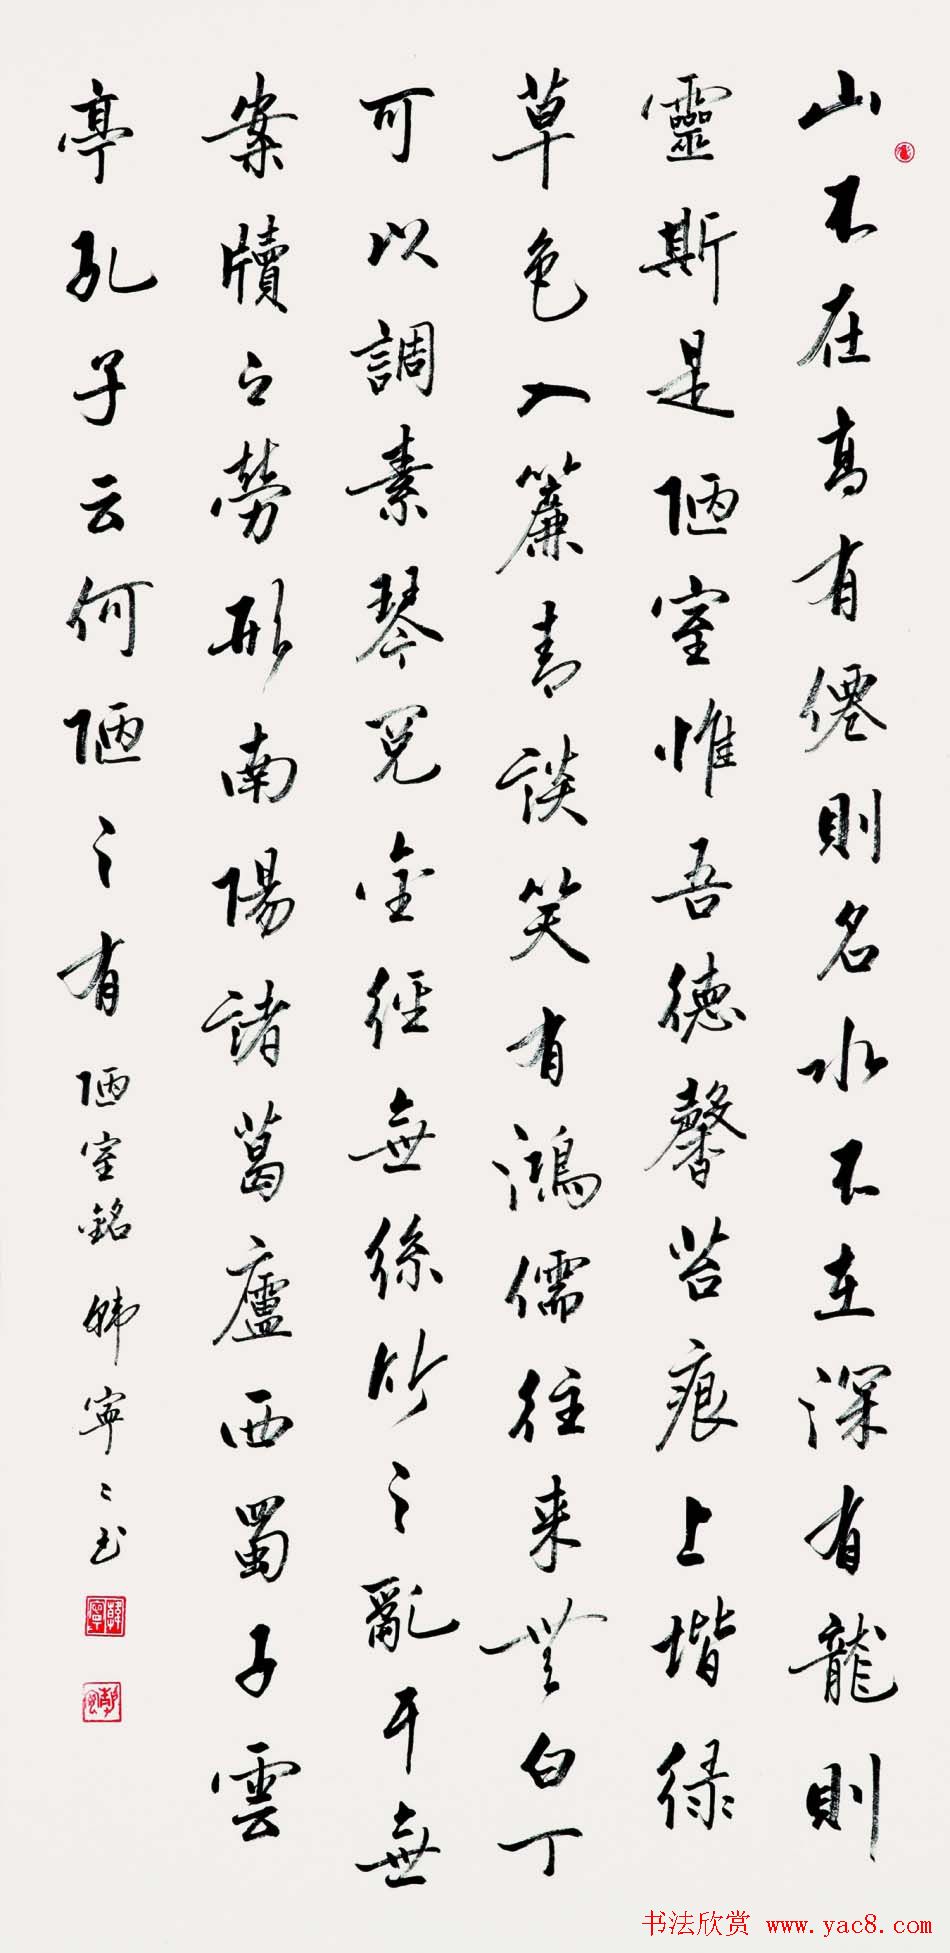 山不在高有僊則名水不在深有龍則
靈斯是陋室惟吾德馨苔痕上堦緑
草色入簾青談笑有鴻儒往来無白丁
可以調素琴閱金經無絲竹之亂耳無
案牘之勞形南陽諸葛廬西蜀子雲
亭孔子云何陋之有 陋室銘 韩寧〻书
韓寧
书法欣赏 www.yac8.com